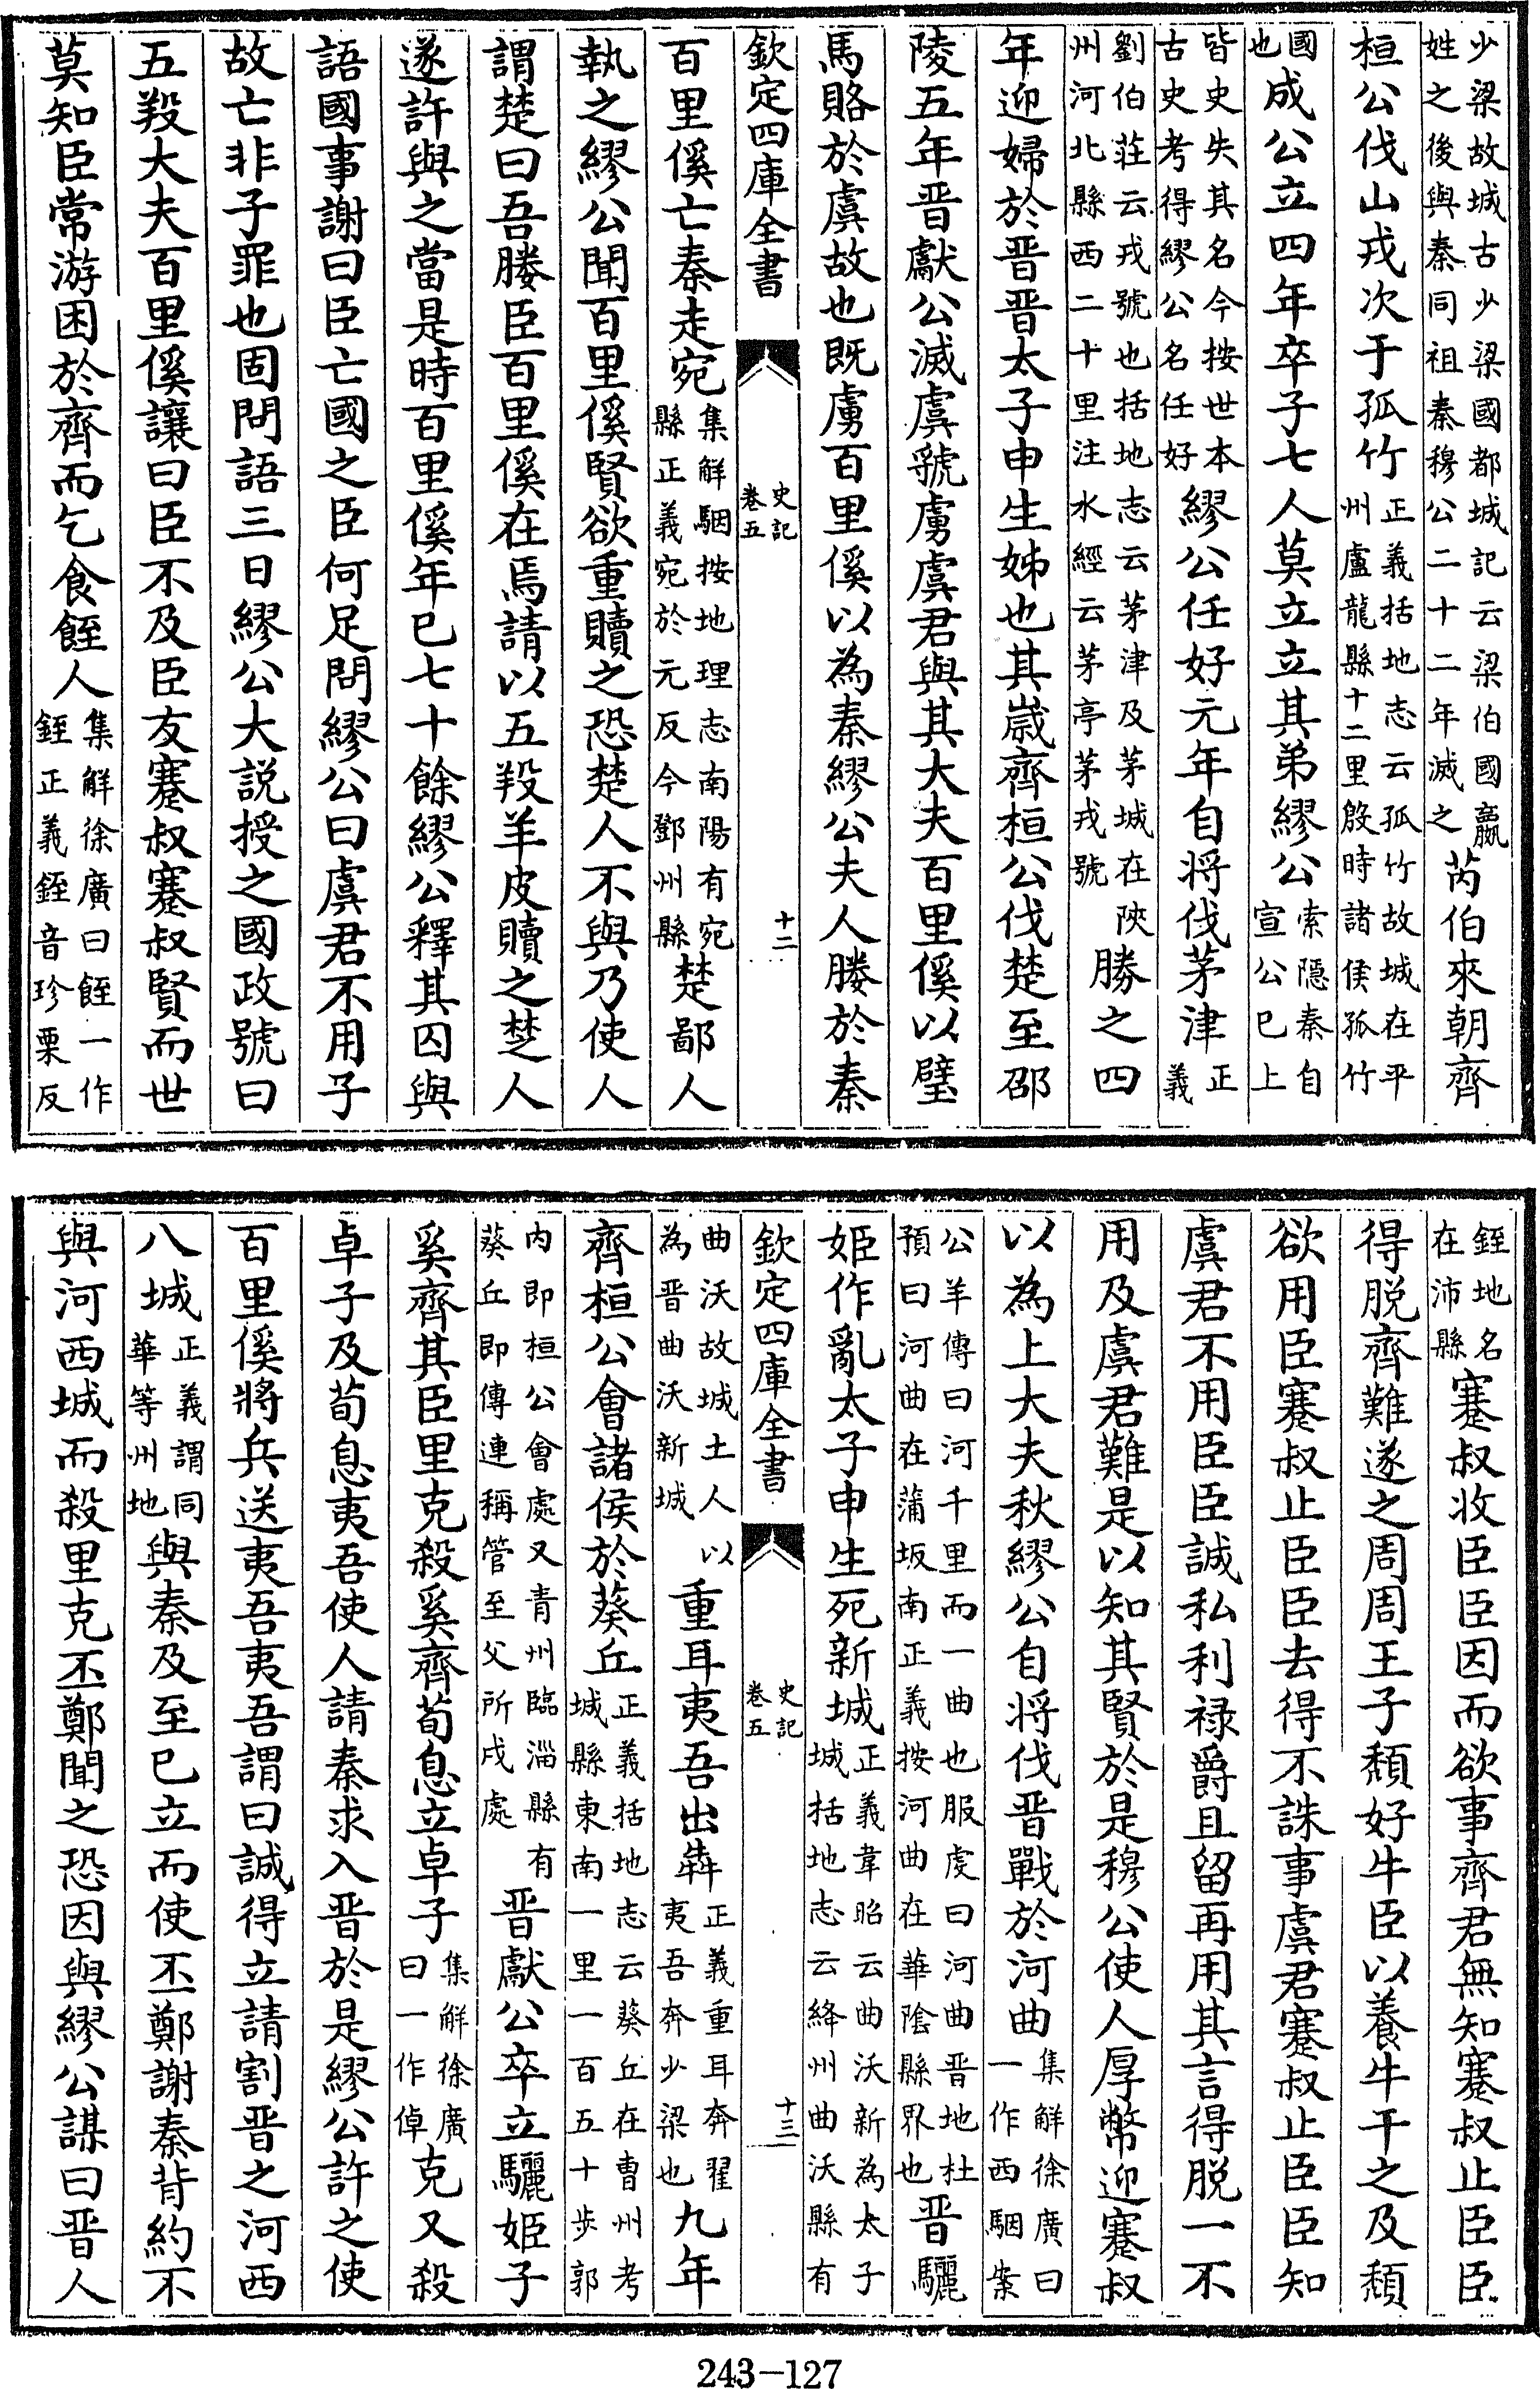 少梁故城古少梁國都城記云梁伯國嬴姓之後與秦同祖秦穆公二十二年滅之芮伯來朝齊
桓公伐山戎次于孤竹正義括地志云孤竹故城在平州盧龍縣十二里殷時諸侯孤竹
國也成公立四年卒子七人莫立立其弟繆公索隱秦自宣公已上
皆史失其名今按世本古史考得繆公名任好繆公任好元年自将伐茅津正義
劉伯莊云戎號也括地志云茅津及茅城在陜州河北縣西二十里注水經云茅亭茅戎號勝之四
年迎婦於晉晉太子申生姊也其嵗齊桓公伐楚至邵
陵五年晉獻公滅虞虢虜虞君與其大夫百里傒以璧
馬賂於虞故也既虜百里傒以為秦繆公夫人媵於秦
欽定四庫全書 史記卷五 十二
百里傒亡秦走宛集解駰按地理志南陽有宛縣正義宛於元反今鄧州縣楚鄙人
執之繆公聞百里傒賢欲重贖之恐楚人不與乃使人
謂楚曰吾媵臣百里傒在焉請以五羖羊皮贖之楚人
遂許與之當是時百里傒年已七十餘繆公釋其囚與
語國事謝曰臣亡國之臣何足問繆公曰虞君不用子
故亡非子罪也固問語三日繆公大説授之國政號曰
五羖大夫百里傒讓曰臣不及臣友蹇叔蹇叔賢而世
莫知臣常游困於齊而乞食銍人集解徐廣曰銍一作銍正義銍音珍栗反
銍地名在沛縣蹇叔收臣臣因而欲事齊君無知蹇叔止臣臣
得脱齊難遂之周周王子頽好牛臣以養牛干之及頽
欲用臣蹇叔止臣臣去得不誅事虞君蹇叔止臣臣知
虞君不用臣臣誠私利禄爵且留再用其言得脱一不
用及虞君難是以知其賢於是穆公使人厚幣迎蹇叔
以為上大夫秋繆公自将伐晉戰於河曲集解徐廣曰一作西駰案
公羊傳曰河千里而一曲也服虔曰河曲晉地杜預曰河曲在蒲坂南正義按河曲在華陰縣界也晉驪
姬作亂太子申生死新城正義韋昭云曲沃新為太子城括地志云絳州曲沃縣有
欽定四庫全書 史記卷五 十三
曲沃故城土人以為晉曲沃新城重耳夷吾出犇正義重耳奔翟夷吾奔少梁也九年
齊桓公會諸侯於葵丘正義括地志云葵丘在曹州考城縣東南一里一百五十步郭
内即桓公會處又青州臨淄縣有葵丘即傳連稱管至父所戍處晉獻公卒立驪姬子
奚齊其臣里克殺奚齊荀息立卓子集解徐廣曰一作倬克又殺
卓子及荀息夷吾使人請秦求入晉於是繆公許之使
百里傒將兵送夷吾夷吾謂曰誠得立請割晉之河西
八城正義謂同華等州地與秦及至已立而使丕鄭謝秦背約不
與河西城而殺里克丕鄭聞之恐因與繆公謀曰晉人
243-127